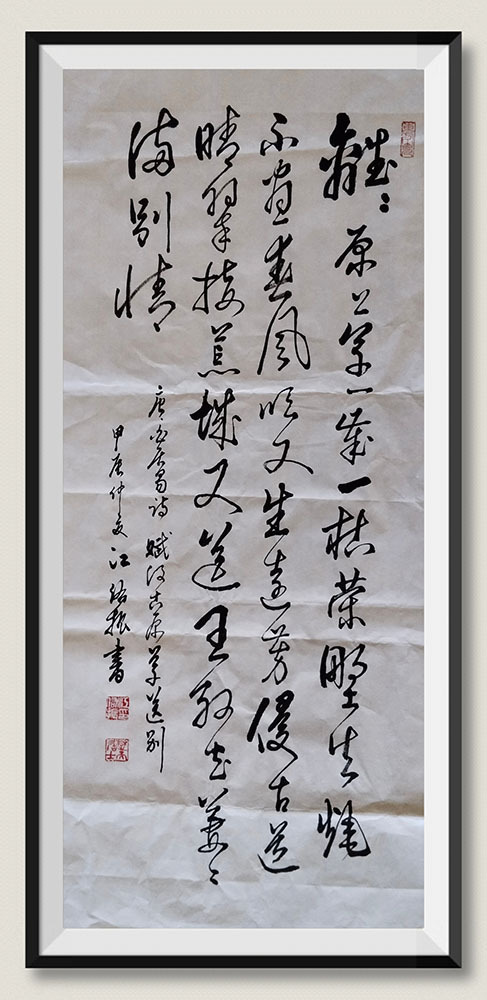 離〻原上草一歲一枯榮野火燒
不盡春風吹又生遠芳侵古道
晴翠接荒城又送王孫去萋〻
滿別情
唐白居易詩 賦得古原草送別
甲辰仲夏 江振書